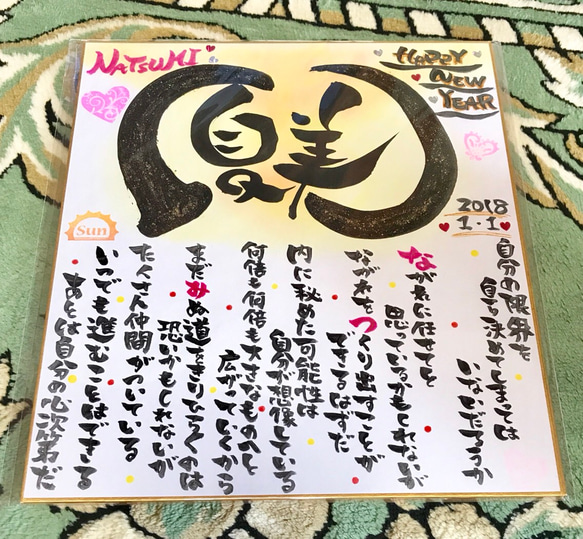 NATSUKI
HAPPY
NEW
YEAR
夏美
2018
1.1
Sun
自分の限界を
自ら決めてしまっては
いないだろうか
ながれに任せてと
思っているかもしれないが
ながれをつくり出すことが
できてるはずだ
内に秘めた可能性は
自分が想像している
何倍も何倍も大きなものへと
広がっていくから
まだみぬ道をきりひらくのは
恐いかもしれないが
たくさん仲間がついている
いつでも進むことはできる
あとは自分の心次第だ